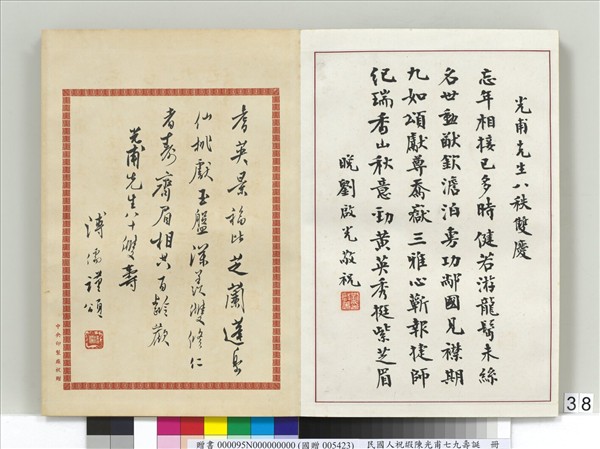 光甫先生八秩雙慶
忘年相接已多時健若游龍鬢未絲
名世勳猷欽澹泊剪功鄰國見襟期
九如頌獻尊喬嶽三雅心蘄報捷師
紀瑞香山秋意勁黃英秀挺紫芝眉
晚劉啟光敬祝
耆英景福比芝蘭蓬島
仙桃獻玉盤深羨雙修仁
者壽齊眉相共百齡歡
光甫先生八十雙壽
溥儒謹頌
中央印製廠祝贈
38
贈書 000095N000000000 (國贈 005423) 民國人祝嘏陳光甫七九壽誕 冊